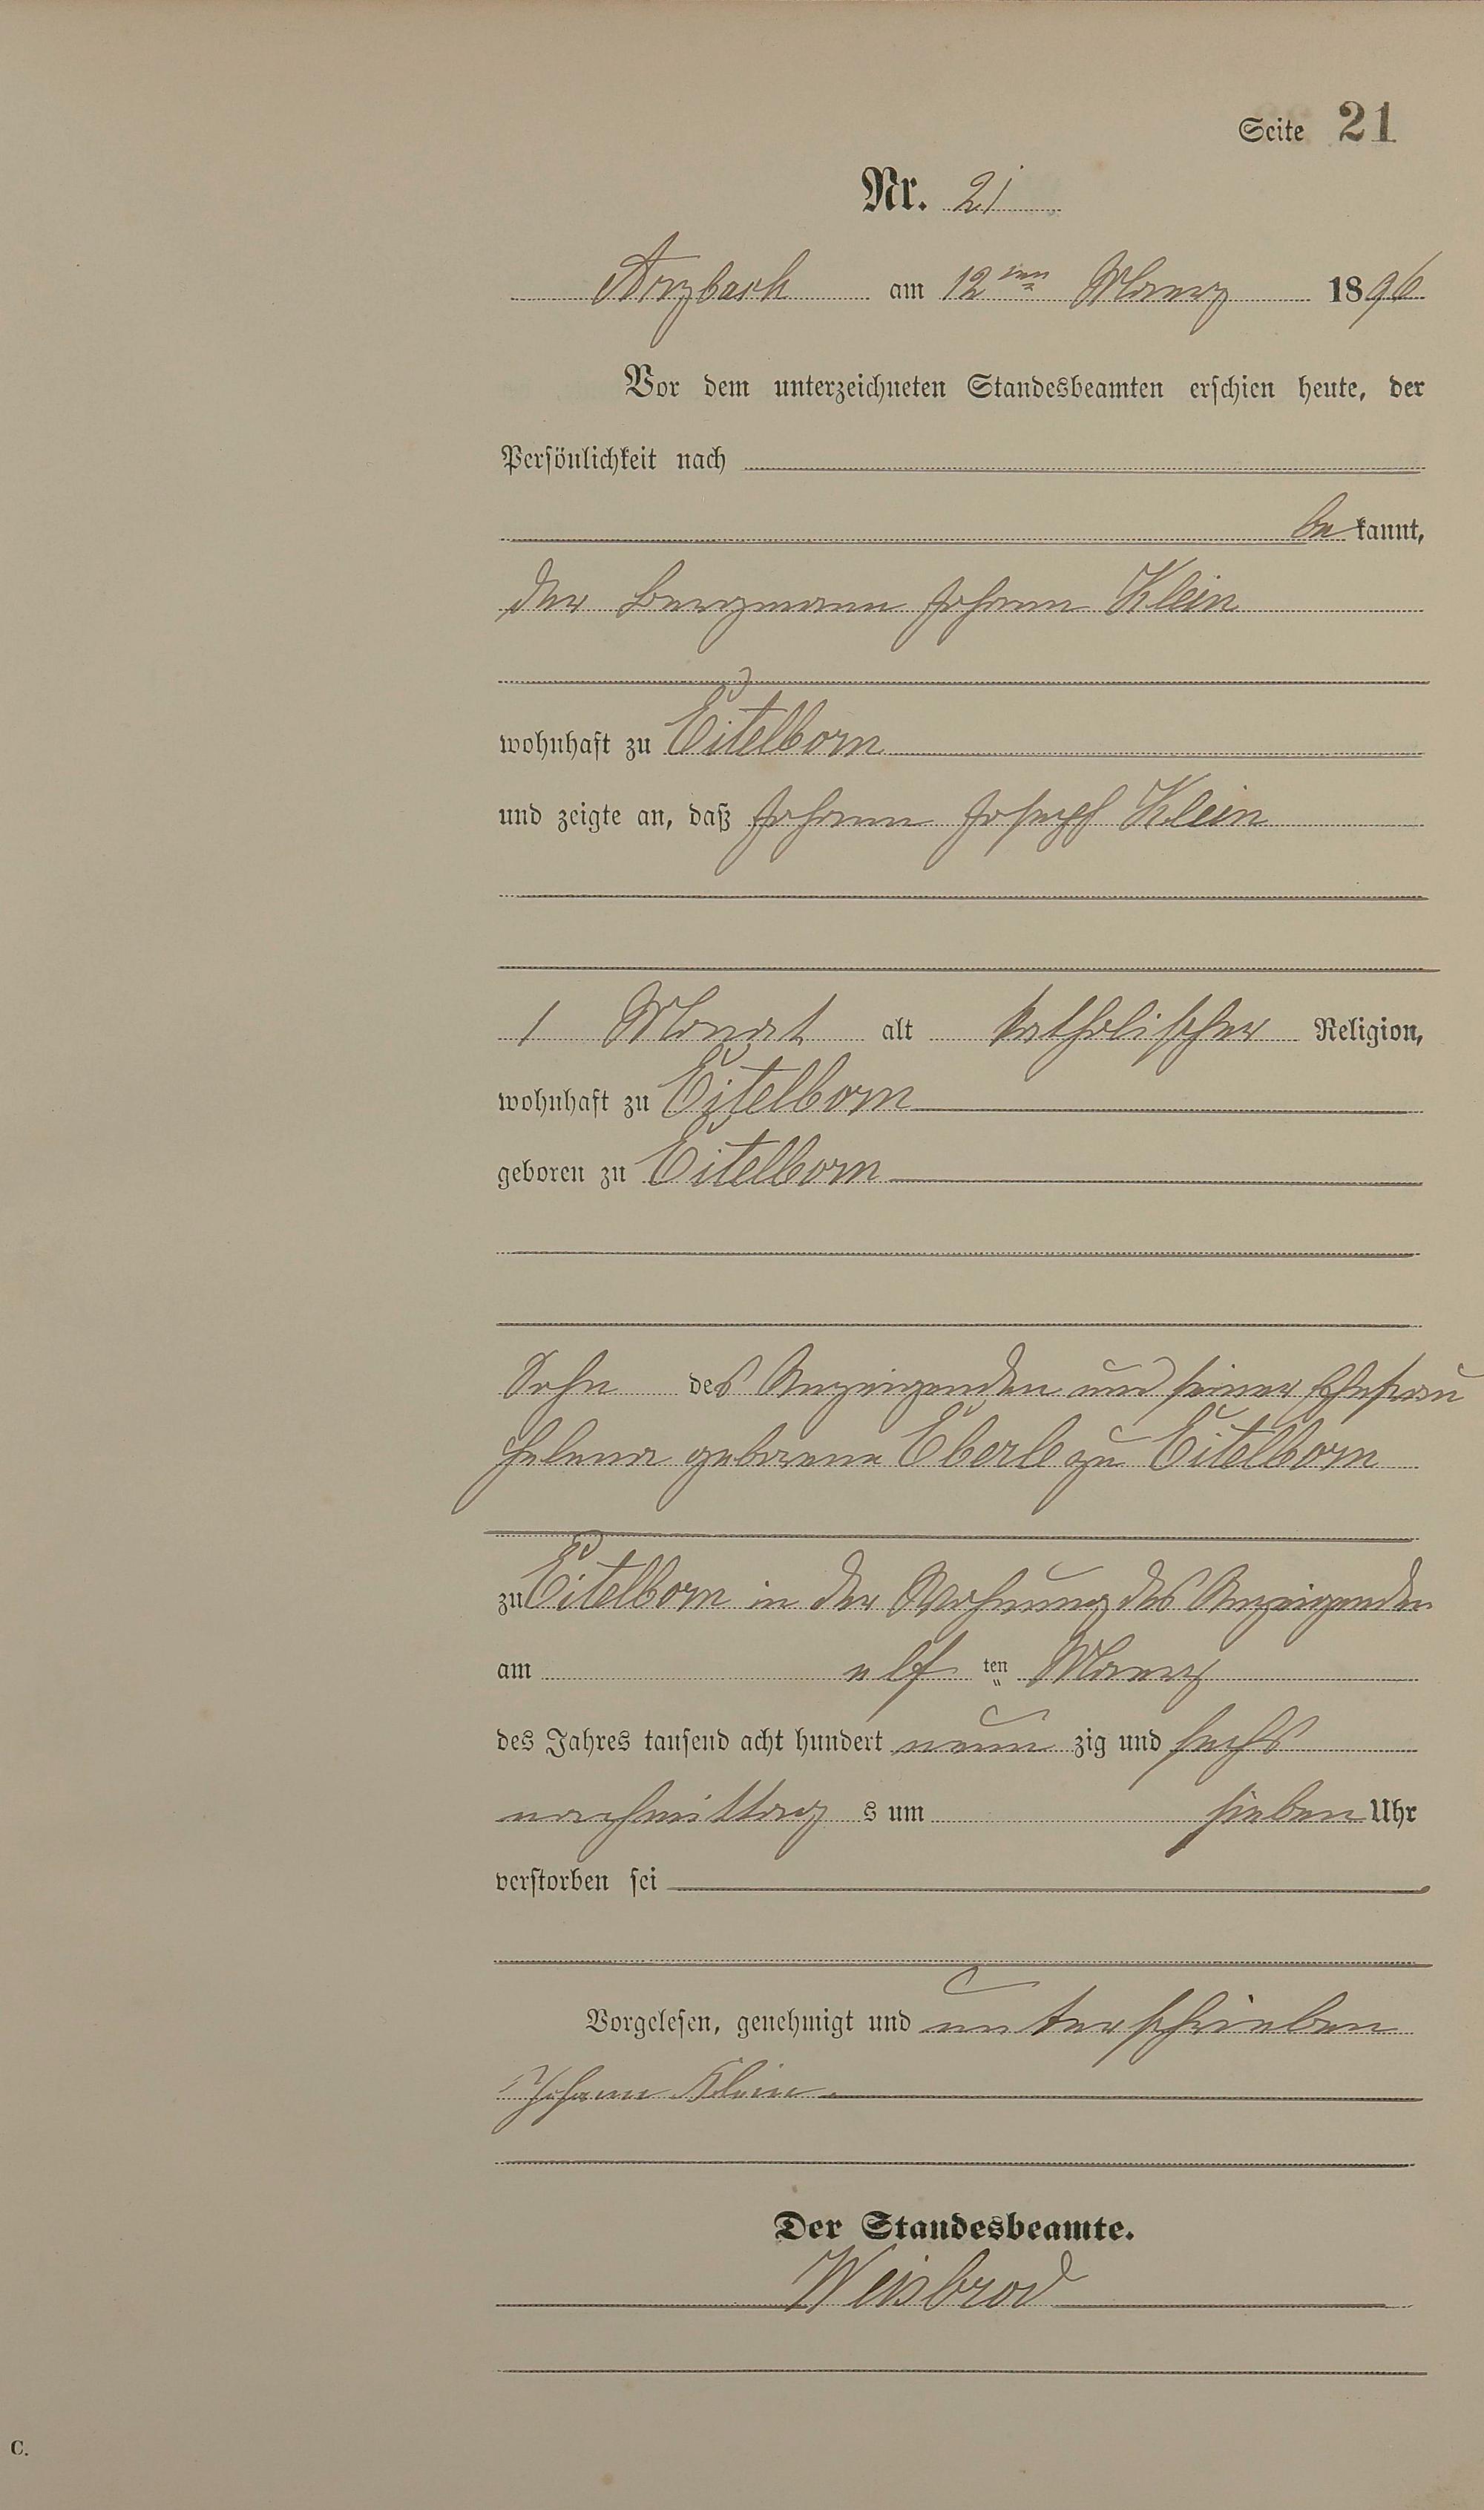 Seite 21
Nr. 21
Arzbach am 12ten Maerz 1896
Vor dem unterzeichneten Standesbeamten erschien heute, der
Persönlichkeit nach
be kannt,
der Bergmann Johann Klein
wohnhaft zu Eitelborn
und zeigte an, daß Johann Joseph Klein
1 Monat alt katholischer Religion,
wohnhaft zu Eitelborn
geboren zu Eitelborn
Sohn des Anzeigenden und seiner Ehefrau
Helena geborene Eberle zu Eitelborn
zu Eitelborn in der Wohnung des Anzeigenden
am elf ten Maerz
des Jahres tausend acht hundert neun zig und sechs
nachmittag s um sieben Uhr
verstorben sei
Vorgelesen, genehmigt und unterschrieben
Johann Klein
Der Standesbeamte.
Weisbrod
C.